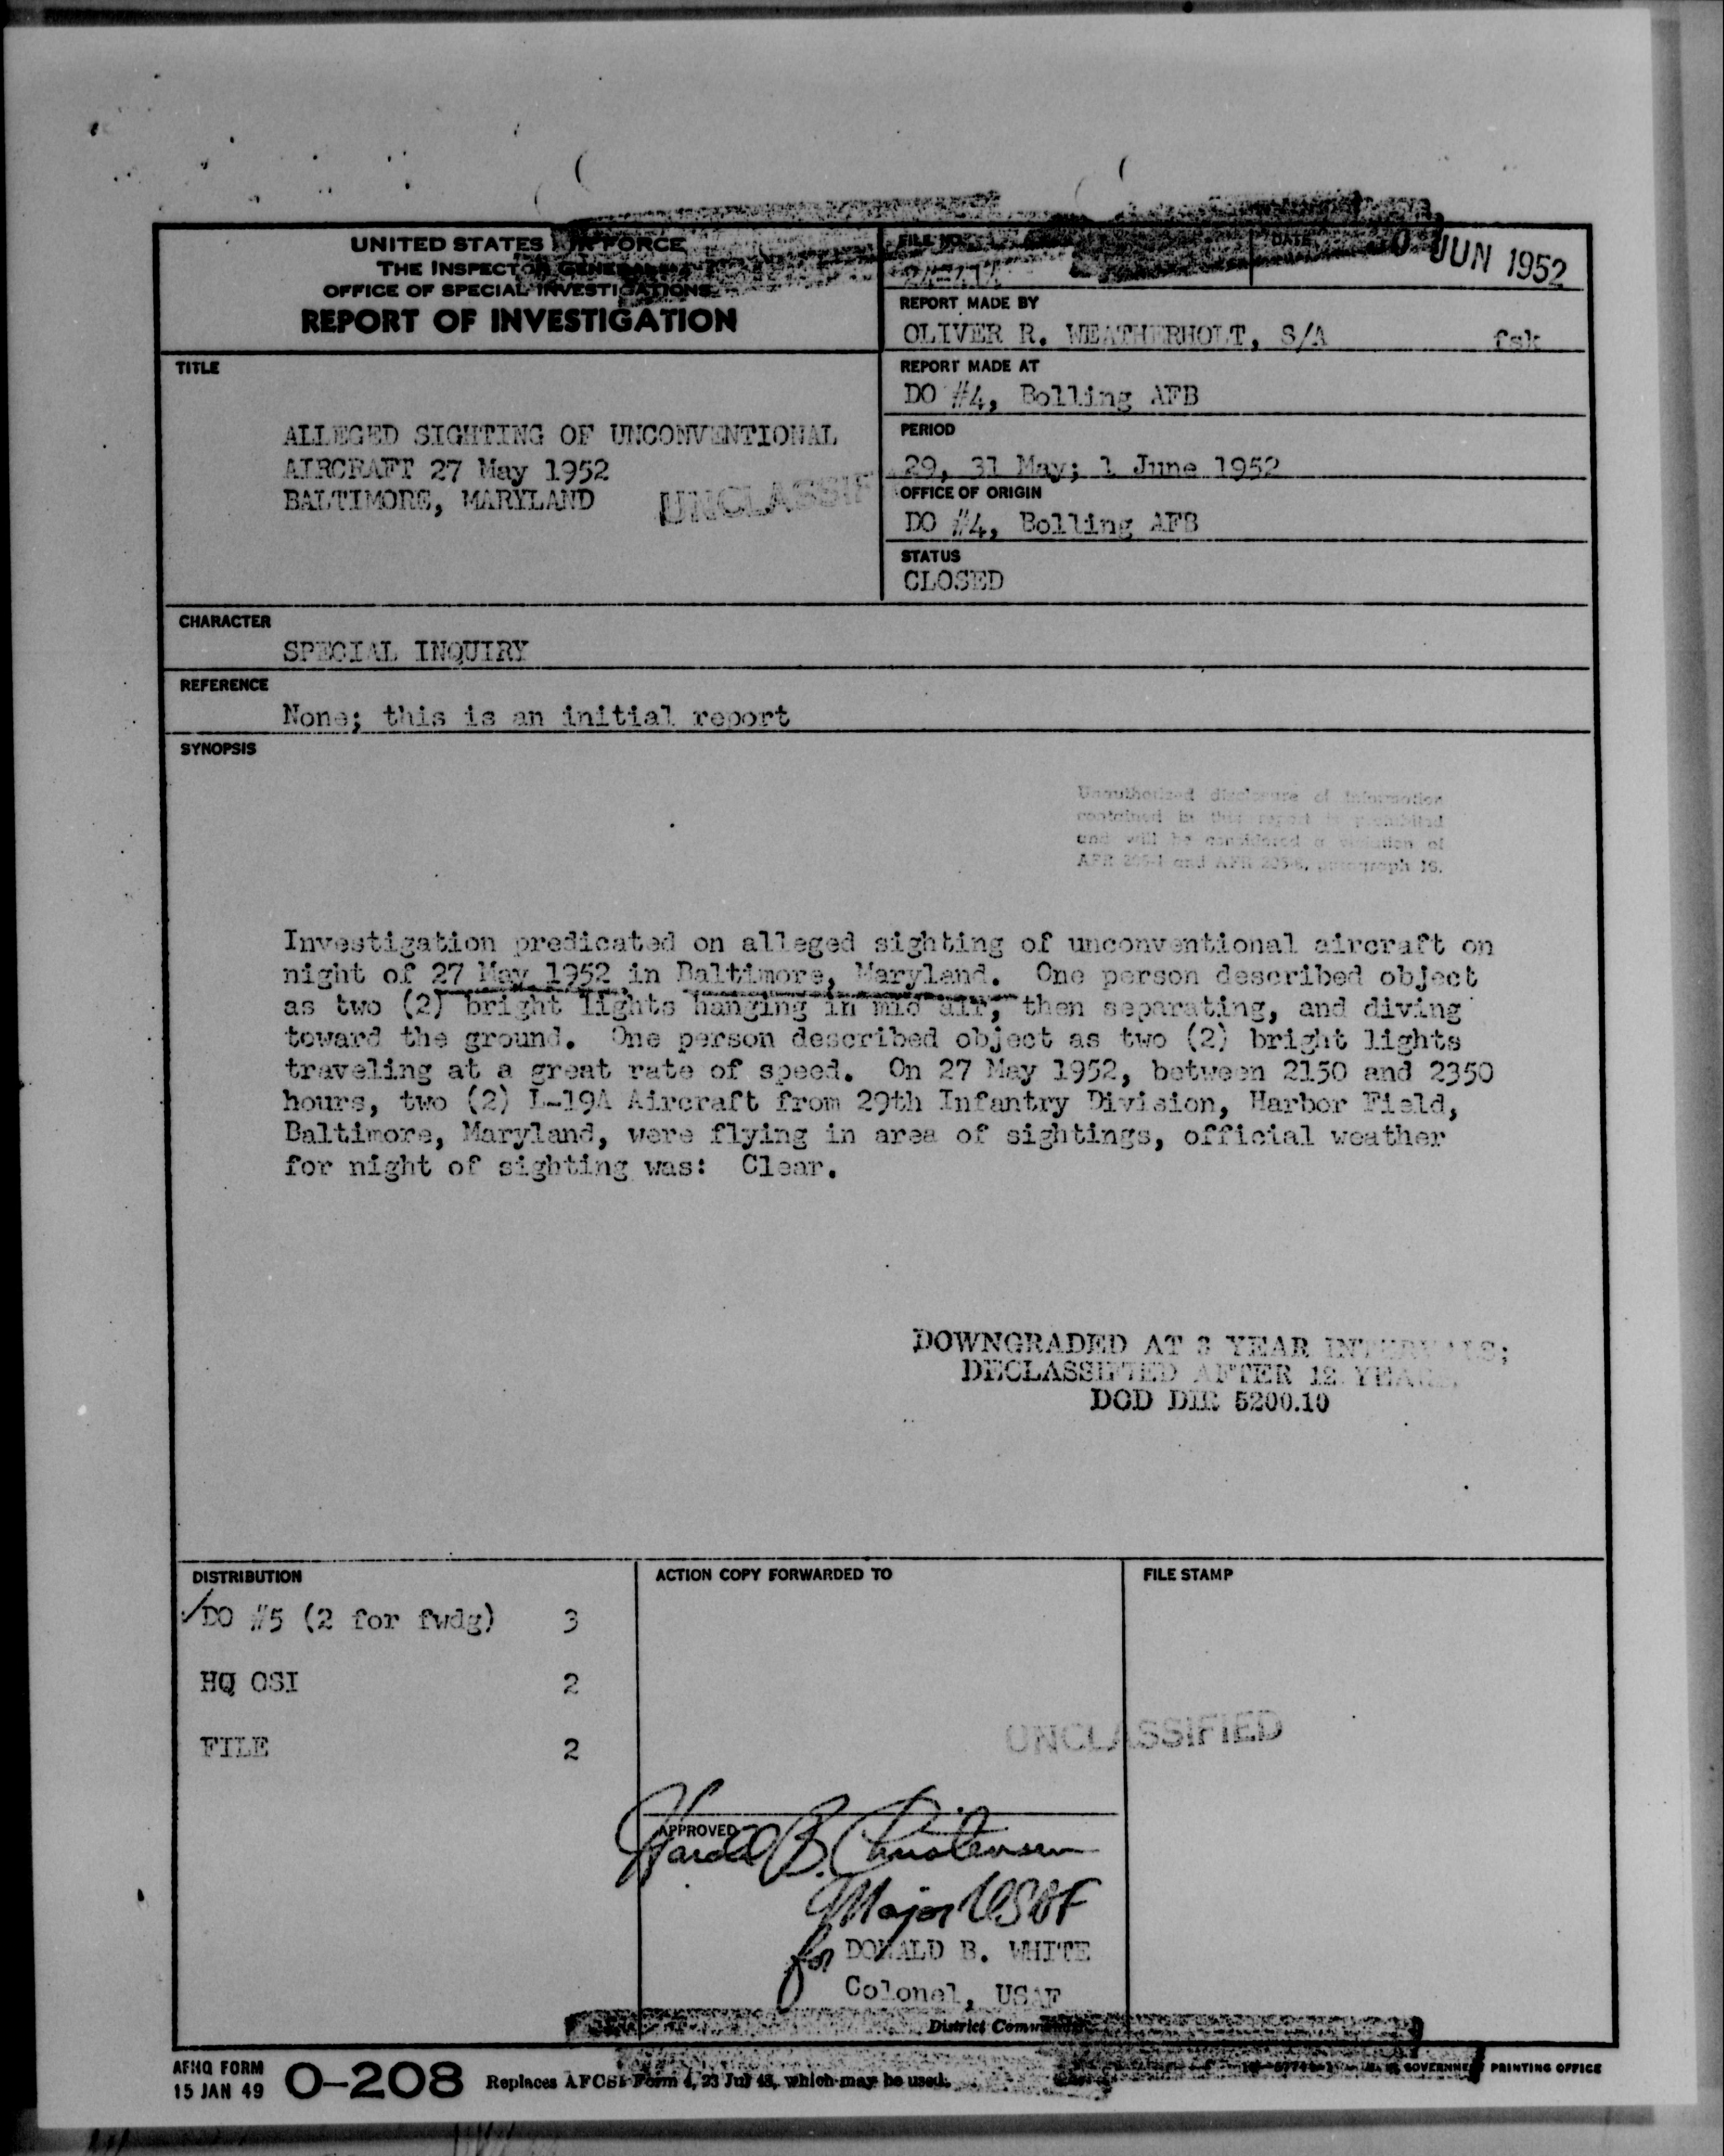 UNITED STATES AIR FORCE
THE INSPECTOR GENERAL
OFFICE OF SPECIAL INVESTIGATIONS
REPORT OF INVESTIGATION
FILE NO.
DATE
JUN 1952
REPORT MADE BY
OLIVER R. WEATHERHOLT, S/A fsk
REPORT MADE AT
DO #4, Bolling AFB
PERIOD
29, 31 May; 1 June 1952
OFFICE OF ORIGIN
DO #4, Bolling AFB
STATUS
CLOSED
TITLE
ALLEGED SIGHTING OF UNCONVENTIONAL
AIRCRAFT 27 May 1952
BALTIMORE, MARYLAND
UNCLASSIF
CHARACTER
SPECIAL INQUIRY
REFERENCE
None; this is an initial report
SYNOPSIS
Unauthorized disclosure of information
contained in this report is prohibited
and will be considered a violation of
AFR and AFR paragraph 16.
Investigation predicated on alleged sighting of unconventional aircraft on
night of 27 May 1952 in Baltimore, Maryland. One person described object
as two (2) bright lights hanging in mid air, then separating, and diving
toward the ground. One person described object as two (2) bright lights
traveling at a great rate of speed. On 27 May 1952, between 2150 and 2350
hours, two (2) L-19A Aircraft from 29th Infantry Division, Harbor Field,
Baltimore, Maryland, were flying in area of sightings, official weather
for night of sighting was: Clear.
DOWNGRADED AT 3 YEAR INTERVALS;
DECLASSIFIED AFTER 12 YEARS.
DOD DIR 5200.10
DISTRIBUTION
DO #5 (2 for fwdg) 3
HQ OSI 2
FILE 2
ACTION COPY FORWARDED TO
FILE STAMP
UNCLASSIFIED
APPROVED
Harold B. Christensen
Major USAF
for DONALD B. WHITE
Colonel, USAF
District Commander
AFHQ FORM
15 JAN 49
O-208
Replaces AFCSI Form 4, 23 Jul 48, which may be used.
GOVERNMENT PRINTING OFFICE